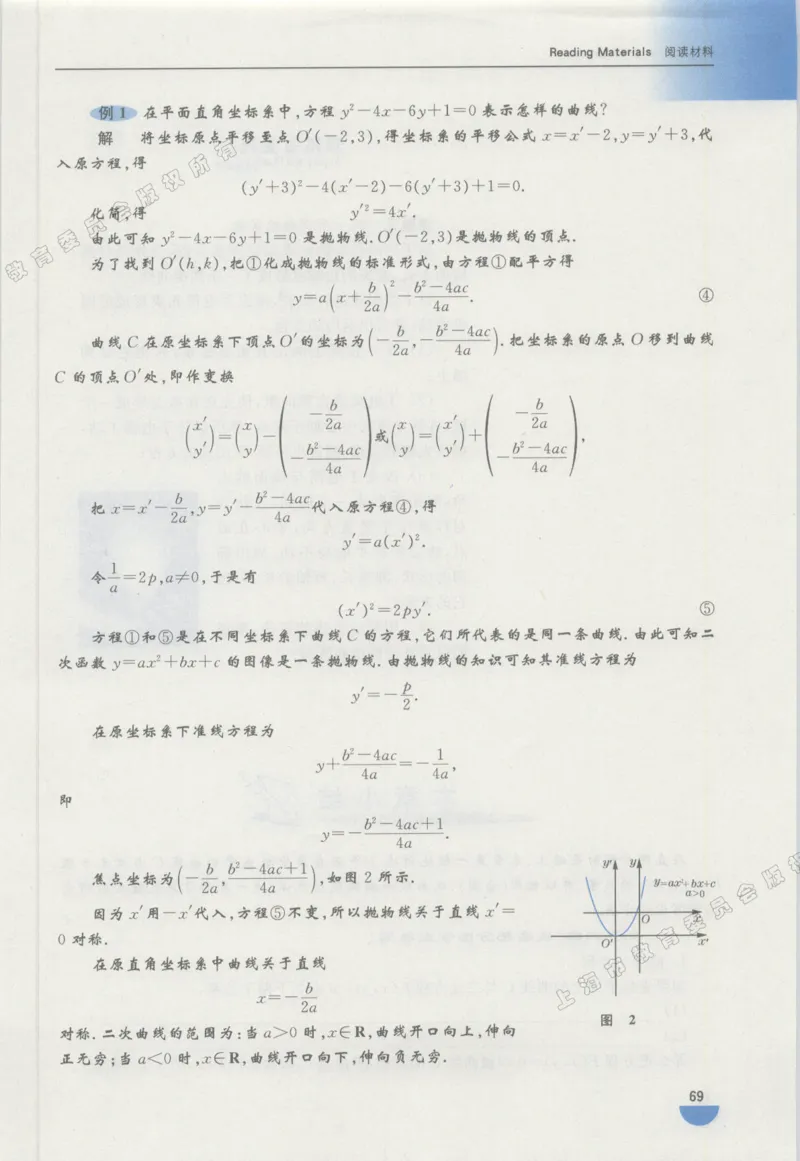 Reading Materials 阅读材料
例1 在平面直角坐标系中,方程 y²-4x-6y+1=0 表示怎样的曲线?
解 将坐标原点平移至点 O′(-2,3),得坐标系的平移公式 x=x′-2,y=y′+3,代
入原方程,得
(y′+3)²-4(x′-2)-6(y′+3)+1=0.
化简,得 y′²=4x′.
由此可知 y²-4x-6y+1=0 是抛物线.O′(-2,3)是抛物线的顶点.
为了找到 O′(h,k),把①化成抛物线的标准形式,由方程①配平方得
y=a(x+b/2a)²-(b²-4ac)/4a. ④
曲线 C 在原坐标系下顶点O′的坐标为(-b/2a,-(b²-4ac)/4a).把坐标系的原点 O 移到曲线
C 的顶点O′处,即作变换
(x′ y′)=(x y)-(-b/2a -(b²-4ac)/4a)或(x y)=(x′ y′)+(-b/2a -(b²-4ac)/4a),
把 x=x′-b/2a,y=y′-(b²-4ac)/4a代入原方程④,得
y′=a(x′)².
令1/a=2p,a≠0,于是有
(x′)²=2py′. ⑤
方程①和⑤是在不同坐标系下曲线 C 的方程,它们所代表的是同一条曲线.由此可知二
次函数 y=ax²+bx+c 的图像是一条抛物线.由抛物线的知识可知其准线方程为
y′=-p/2.
在原坐标系下准线方程为
y+(b²-4ac)/4a=-1/4a,
即
y=-(b²-4ac+1)/4a.
焦点坐标为(-b/2a,(b²-4ac+1)/4a),如图 2 所示.
因为 x′用-x′代入,方程⑤不变,所以抛物线关于直线 x′=
0 对称.
在原直角坐标系中曲线关于直线
x=-b/2a
对称.二次曲线的范围为:当 a>0 时,x∈R,曲线开口向上,伸向
正无穷;当 a<0 时,x∈R,曲线开口向下,伸向负无穷.
y′ y
y=ax²+bx+c
a>0
O x
O′ x′
图 2
69
教育委员会版权所有
上海市教育委员会版权